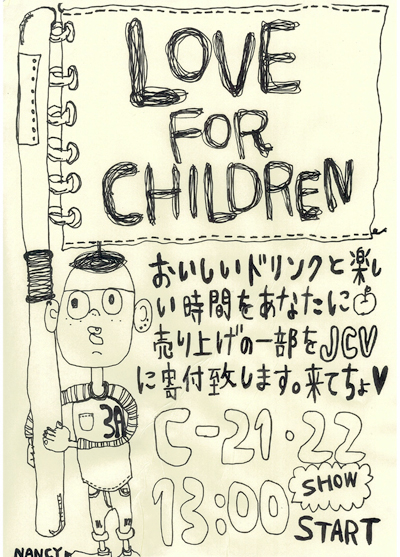 LOVE
FOR
CHILDREN
おいしいドリンクと楽し
い時間をあなたに
売り上げの一部をJCV
に寄付致します。来てちょ♥
3A
C-21・22
13:00 SHOW
START
NANCY